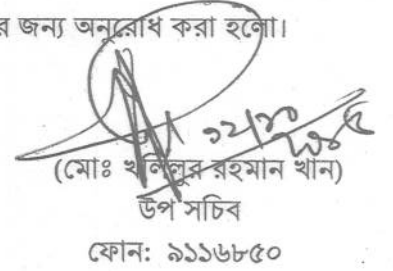 র জন্য অনুরোধ করা হলো।
১২/১০
(মোঃ খলিলুর রহমান খান)
উপ সচিব
ফোন: ৯১১৬৮৫০